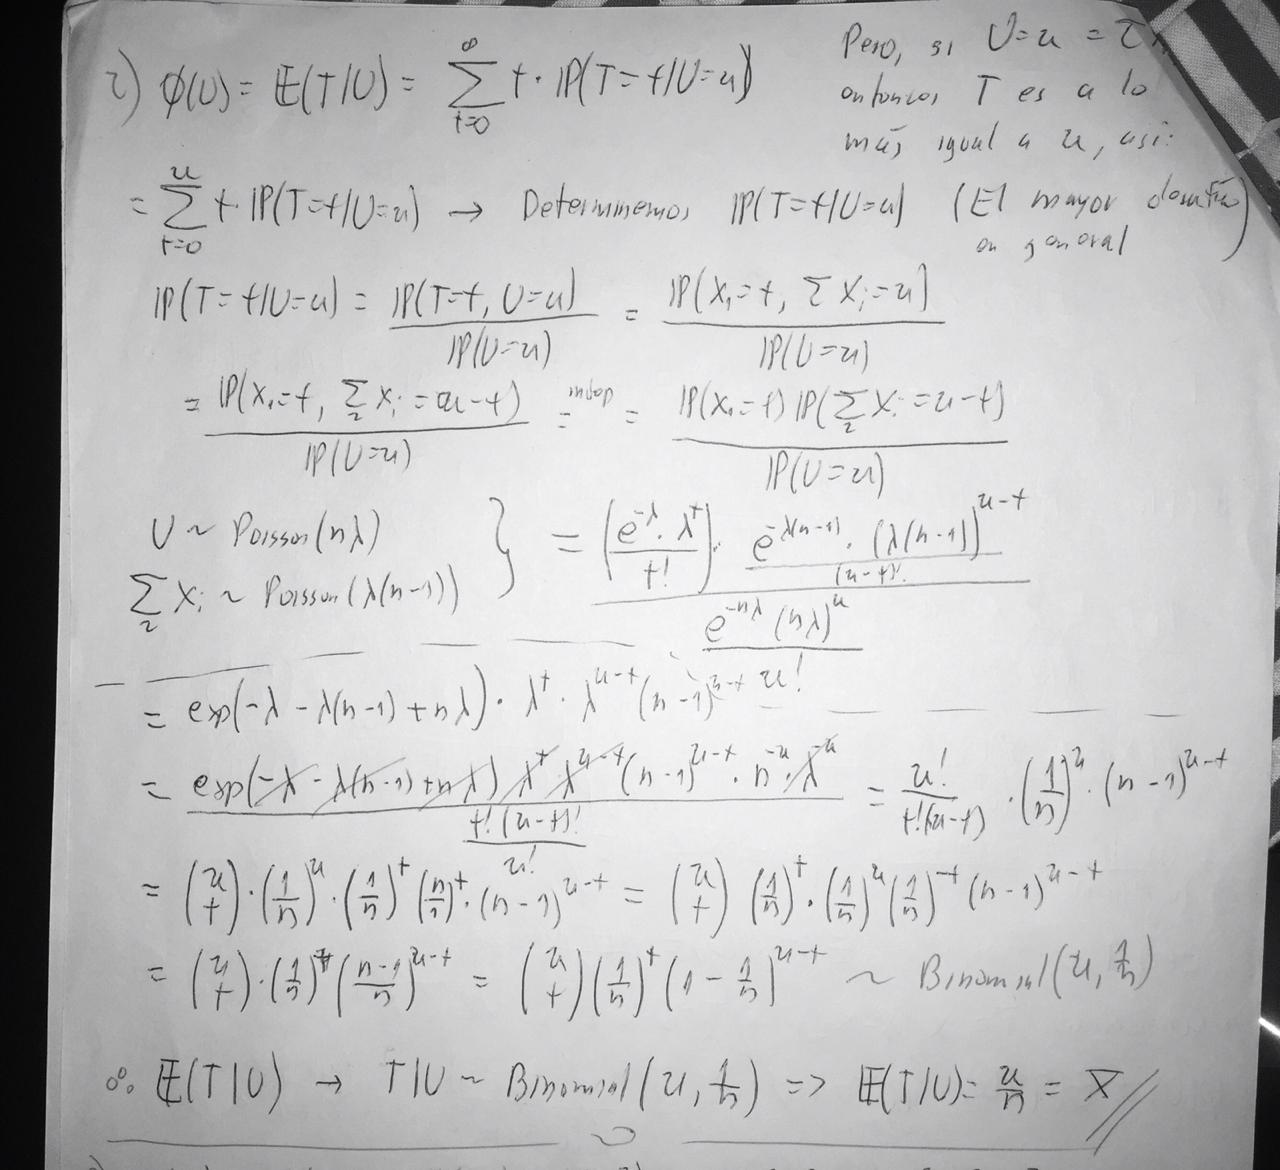 2) φ(U) = E(T|U) = ∑_{t=0}^{∞} t · IP(T=t|U=u)
Pero, si U=u = ∑
entonces T es a lo
más igual a u, así:
= ∑_{t=0}^{u} t · IP(T=t|U=u) → Determinemos IP(T=t|U=u) (El mayor
en general
IP(T=t|U=u) = IP(T=t, U=u) / IP(U=u) = IP(X₁=t, ∑Xᵢ=u) / IP(U=u)
= IP(X₁=t, ∑₂Xᵢ=u-t) / IP(U=u) = indep = IP(X₁=t) IP(∑₂Xᵢ=u-t) / IP(U=u)
U ~ Poisson(nλ)
∑₂ Xᵢ ~ Poisson(λ(n-1))
} = (e^{-λ} · λ^t / t!) · (e^{-λ(n-1)} · (λ(n-1))^{u-t} / (u-t)!) / (e^{-nλ} (nλ)^u / u!)
= exp(-λ - λ(n-1) + nλ) · λ^t · λ^{u-t} (n-1)^{u-t}
= exp(-λ - λ(n-1) + nλ) λ^t λ^{u-t} (n-1)^{u-t} · n^{-u} · λ^{-u} / (t!(u-t)! / u!) = u! / t!(u-t) · (1/n)^u · (n-1)^{u-t}
= (u t) · (1/n)^u · (1/n)^t (n/1)^t · (n-1)^{u-t} = (u t) (1/n)^t · (1/n)^u (1/n)^{-t} (n-1)^{u-t}
= (u t) · (1/n)^t ((n-1)/n)^{u-t} = (u t) (1/n)^t (1 - 1/n)^{u-t} ~ Binomial(u, 1/n)
∴ E(T|U) → T|U ~ Binomial(u, 1/n) => E(T|U) = u/n = X̄ //